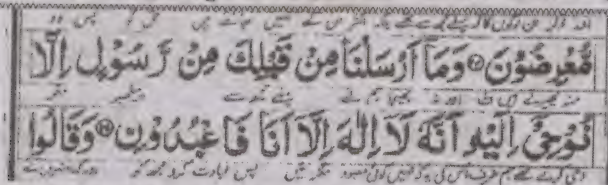 اور ذکر ان لوگوں کا کہ پہلے مجھ سے تھے بلکہ اکثر ان کے نہیں جانتے ہیں حق کو پس وہ
مُّعْرِضُوْنَ۝۲۴ وَمَاۤ اَرْسَلْنَا مِنْ قَبْلِكَ مِنْ رَّسُوْلٍ اِلَّا
منہ پھیرنے والے ہیں اور نہ بھیجا ہم نے پہلے تجھ سے پیغمبر مگر
نُوْحِیْۤ اِلَیْهِ اَنَّهٗ لَاۤ اِلٰهَ اِلَّاۤ اَنَا فَاعْبُدُوْنِ۝۲۵ وَقَالُوا
وحی کرتے تھے ہم طرف اس کی یہ کہ نہیں کوئی معبود مگر میں پس عبادت کرو مجھ کو اور کہا انہوں نے